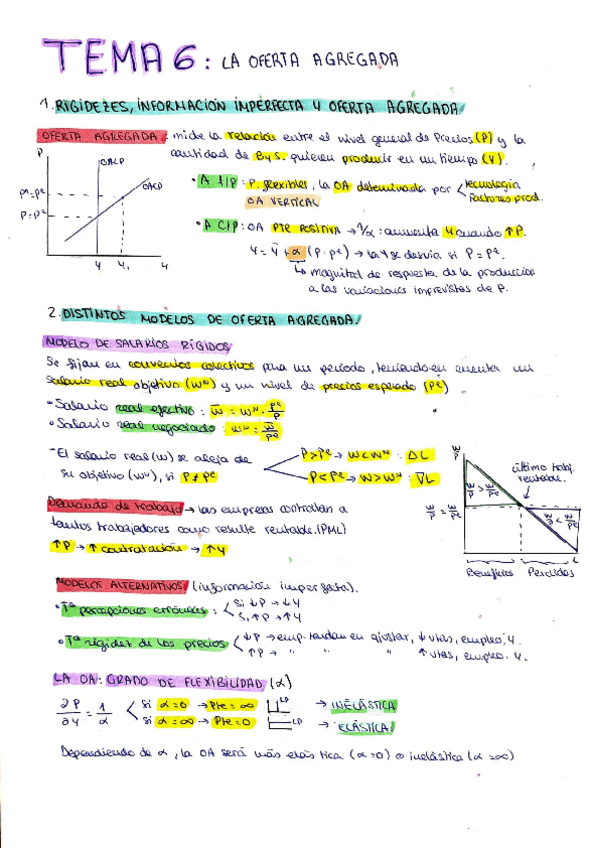 TEMA 6: LA OFERTA AGREGADA
1. RIGIDEZES, INFORMACIÓN IMPERFECTA Y OFERTA AGREGADA.
OFERTA AGREGADA: mide la relación entre el nivel general de Precios (P) y la
cantidad de B y S. quieren producir en un tiempo (Y).
P
OALP
OACP
P=Pe
Y Y₁ Y
• A l/P: P. flexibles, la OA determinada por < tecnología
Factores prod.
OA VERTICAL
• A C/P: OA PTE POSITIVA → 1/α: aumenta Y cuando ↑P.
Y = Ȳ + α (P - Pe) → la Y se desvía si P = Pe.
↳ magnitud de respuesta de la producción
a las variaciones imprevistas de P.
2. DISTINTOS MODELOS DE OFERTA AGREGADA.
MODELO DE SALARIOS RÍGIDOS
Se fijan en convenios colectivos para un período, teniendo en cuenta un
salario real objetivo (wᴺ) y un nivel de precios esperado (Pe)
• Salario real efectivo: w = wᴺ · Pe/P
• Salario real negociado: wᴺ = W̄/Pe
- El salario real (w) se aleja de
su objetivo (wᴺ), si P ≠ Pe
P > Pe → w < wᴺ: ΔL
P < Pe → w > wᴺ: ∇L
último trab.
rentable.
W/P
W/P = W/Pe
W/P > W/Pe
W/P < W/Pe
L
Beneficios Perdidas
Demanda de trabajo → las empresas contratan a
tantos trabajadores como resulte rentable. (PML)
↑P → ↑ contratación → ↑Y
MODELOS ALTERNATIVOS (información imperfecta).
• Tª percepciones erróneas: < Si ↓P → ↓Y
Si ↑P → ↑Y
• Tª rigidez de los precios < ↓P → emp. tardan en ajustar, ↓vtas, empleo, Y.
↑P → " " " ↑vtas, empleo. Y.
LA OA: GRADO DE FLEXIBILIDAD (α)
∂P/∂Y = 1/α < Si α=0 → Pte = ∞ LP → INELÁSTICA
Si α=∞ → Pte = 0 LP → ELÁSTICA
Dependiendo de α, la OA será más elástica (α=0) o inelástica (α=∞)